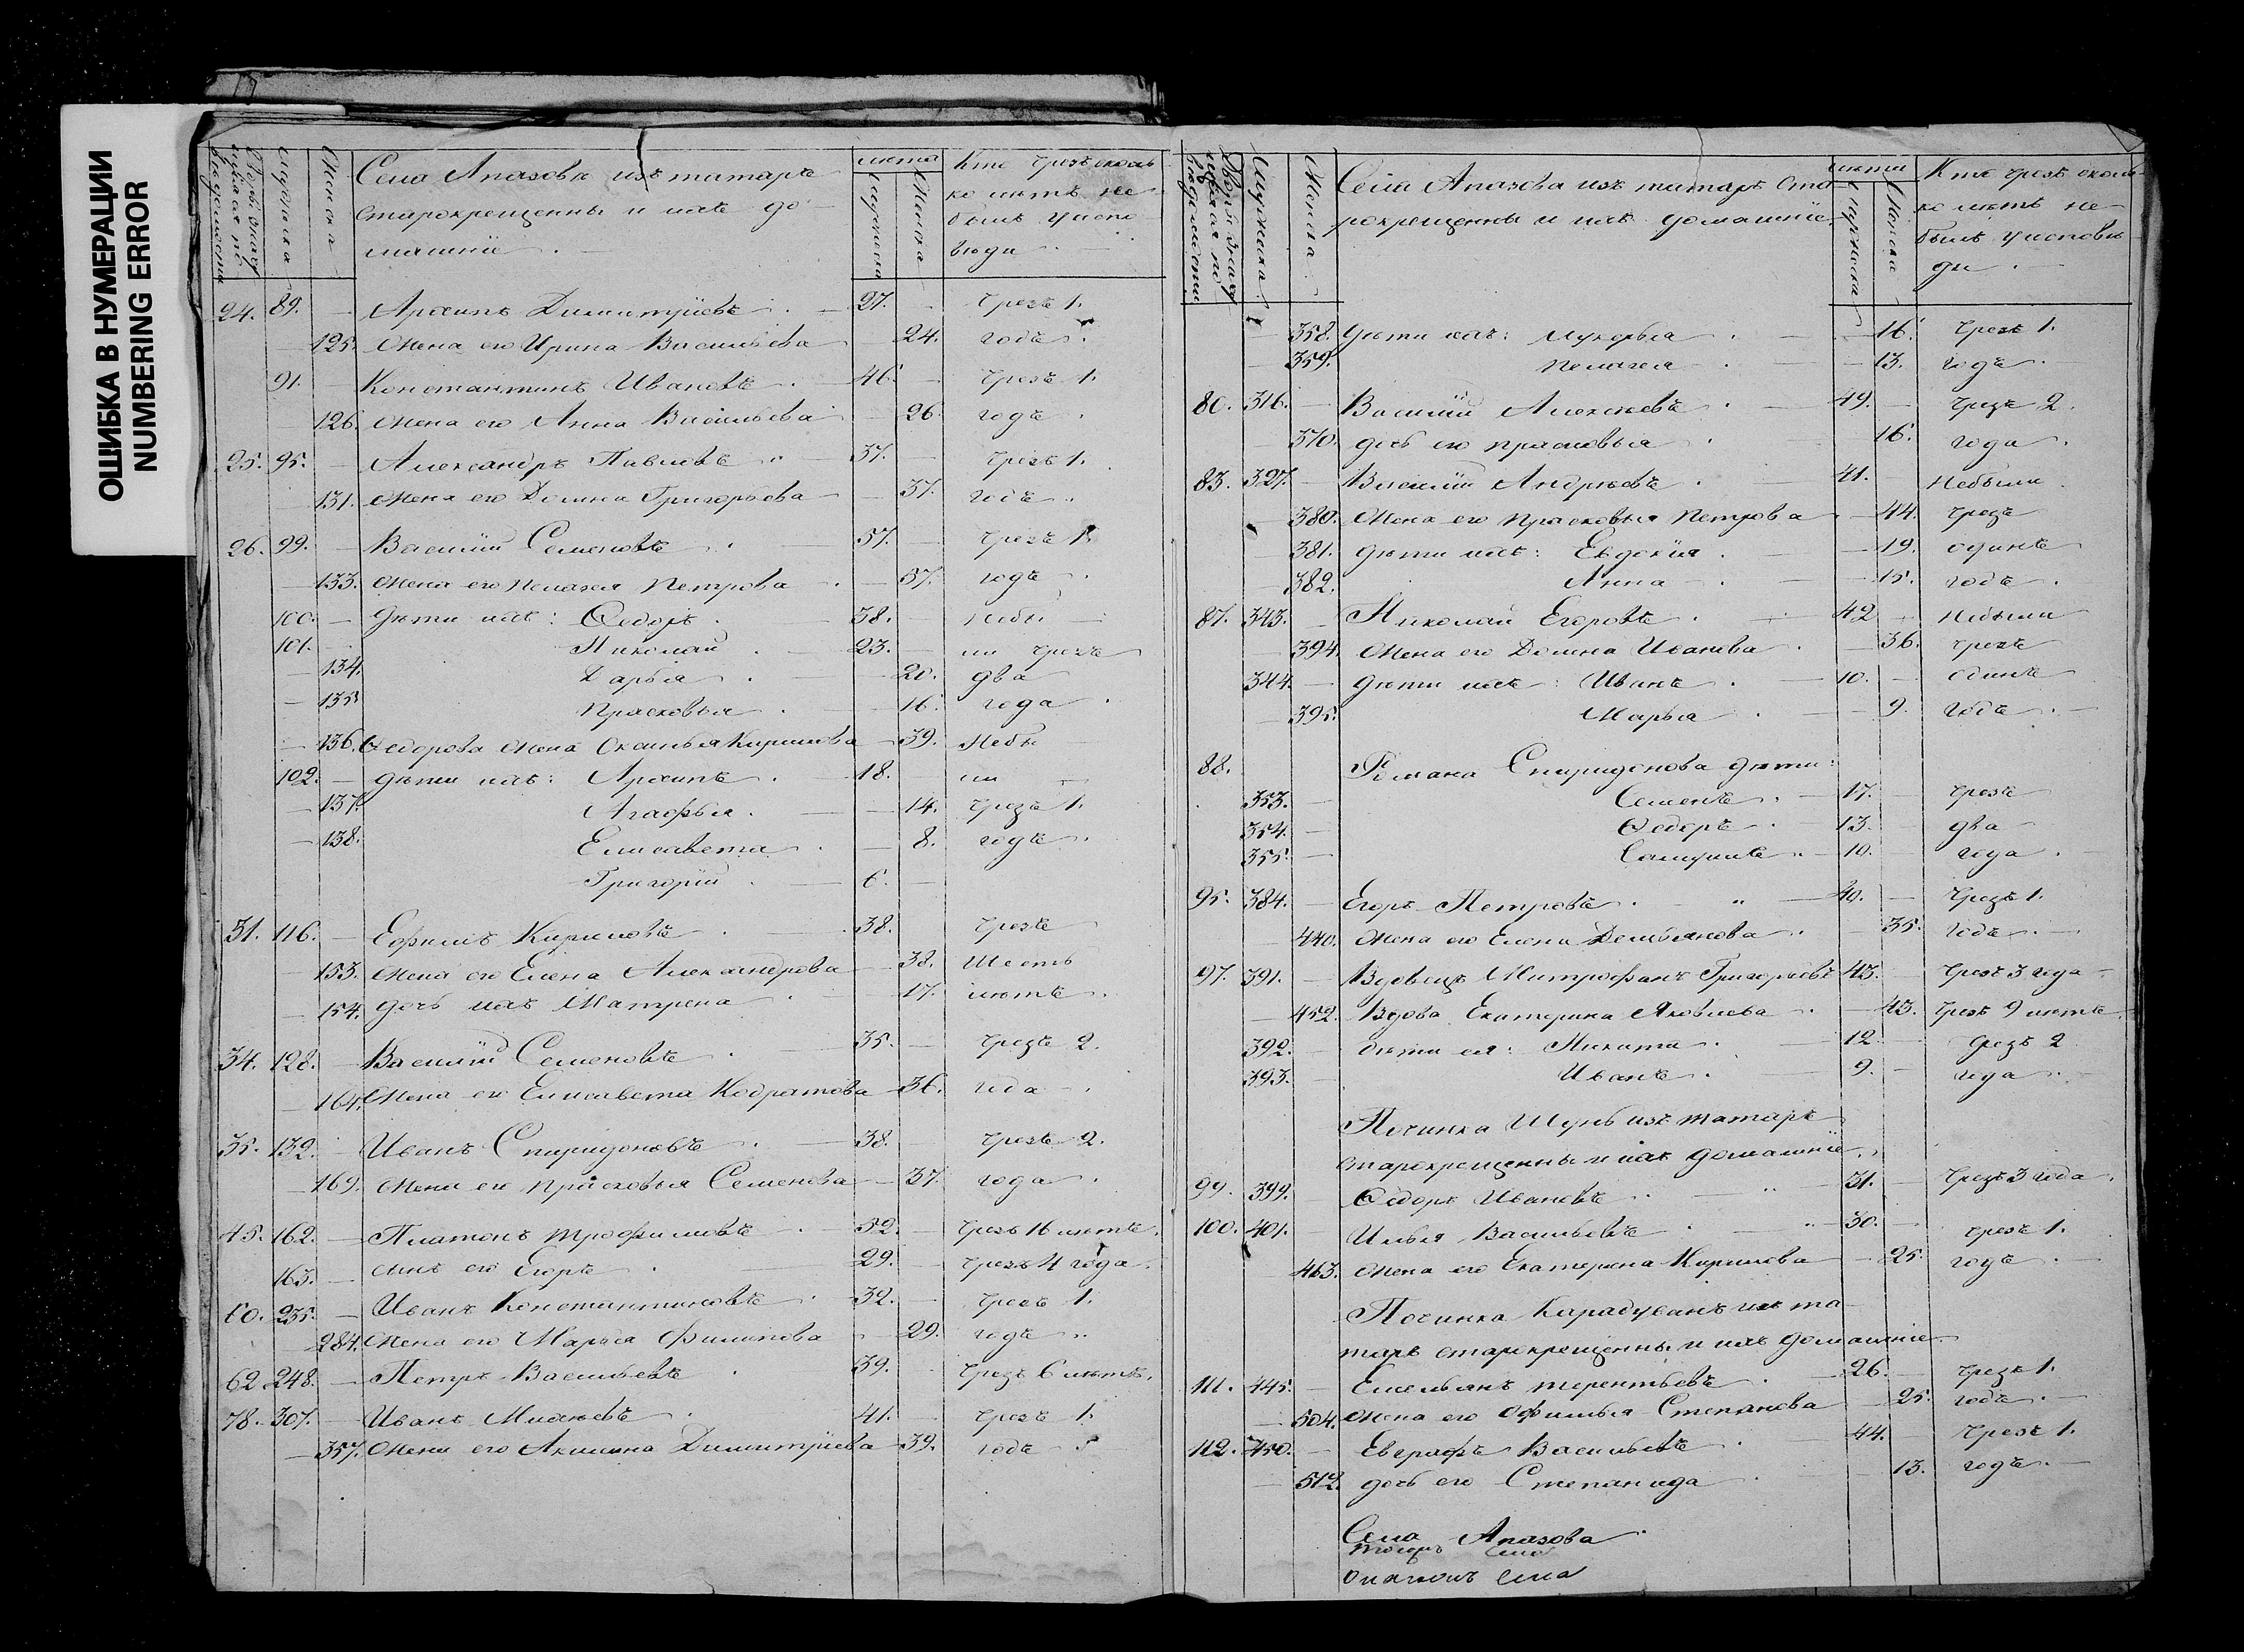 ОШИБКА В НУМЕРАЦИИ
NUMBERING ERROR
Мужска
Женска
Села Апазова изъ татаръ
старокрещенны и ихъ до-
машніе
лѣта
Мужска
Женска
Кто чрезъ сколь
ко лѣтъ не
былъ у испо
вѣди
24. 89. — Архипъ Димитріевъ 27. — чрезъ 1.
— 125. Жена его Ирина Васильева 24. годъ
91. — Константинъ Ивановъ 46. — чрезъ 1.
126. Жена его Анна Васильева — 26. годъ
25. 95. — Александръ Павловъ 37. — чрезъ 1.
131. Жена его Домна Григорьева — 37. годъ
26. 99. — Василій Семеновъ 57. — чрезъ 1.
— 133. Жена его Пелагея Петрова — 57. годъ
100. — Дѣти ихъ: Ѳедоръ 38. — небы
101. — Николай 23. — ли чрезъ
— 134. Дарья — 20. два
— 135. Прасковья — 16. года
— 136. Ѳедорова жена Кирилова — 39. Небы
102. — дѣти ихъ: Архипъ 18. ли
— 137. Агафья — 14. чрезъ 1.
— 138. Елисавета — 8. годъ
Григорій 6. —
31. 116. — Ефимъ Кириловъ 38. чрезъ
— 153. Жена его Елена Александрова 38. шесть
— 154. дочь ихъ Матрена 17. лѣтъ
34. 128. — Василій Семеновъ 35. — чрезъ 2.
— 164. Жена его Елисавета Кодратова — 36. года
35. 132. Иванъ Спиридоновъ 38. чрезъ 2.
— 169. Жена его Прасковья Семенова — 37. года
45. 162. — Платонъ Трофимовъ 52. — чрезъ 16 лѣтъ.
163. — сынъ его Егоръ 29. — чрезъ 4 года.
60. 235. — Иванъ Константиновъ 32. — чрезъ 1.
284. Жена его Марья Филипова 29. годъ
62. 248. — Петръ Васильевъ 39. чрезъ 6 лѣтъ.
78. 307. — Иванъ 41. чрезъ 1.
— 357. Жена его Акилина Димитріева — 39. годъ
Мужска
Женска
Села Апазова изъ татаръ ста
рокрещенны и ихъ домашніе.
лѣта
Мужска
Женска
Кто чрезъ сколь
ко лѣтъ не-
былъ у исповѣ
ди
— 358. Дѣти ихъ: Лукерья — 16. чрезъ 1.
— 359. Пелагея — 13. годъ
80. 316. — Василій Алексѣевъ 49. — чрезъ 2.
— 370. дочь его Прасковья 16. года
83. 327. — Василій Андреевъ 41. Небыли
— 380. Жена его Прасковья Петрова — 44. чрезъ
— 381. Дѣти ихъ: Евдокія — 19. одинъ
— 382. Анна — 15. годъ
87. 343. — Николай Егоровъ 42 — Небыли
— 394. Жена его Домна Иванова — 36. чрезъ
344. — дѣти ихъ: Иванъ 10. — одинъ
— 395. Марья — 9. годъ
88. Романа Спиридонова дѣти:
353. — Семенъ 17. — чрезъ
354. — Ѳедоръ 13. — два
355. — 10. — года
95. 384. — Егоръ Петровъ 40. — Чрезъ 1.
— 440. Жена его Елена Демьянова — 35. годъ
97. 391. — Вдовецъ Митрофанъ Григорьевъ 43. — Чрезъ 3 года
— 452. Вдова Екатерина Яковлева — 43. чрезъ 9 лѣтъ
392. — дѣти ея: Никита 12 чрезъ 2
393. — Иванъ 9. — года
Починка Шунь изъ татаръ
старокрещенны и ихъ домашніе.
99. 399. — Ѳедоръ Ивановъ 31. — Чрезъ 3 года.
100. 401. Илья Васильевъ 30. — чрезъ 1.
— 463. Жена его Екатерина Кирилова — 25. годъ
Починка Карадуванъ изъ та-
таръ старокрещенны и ихъ домашніе
111. 445. — Емельянъ Терентьевъ 26. — Чрезъ 1.
— 504. Жена его Офимья Степанова — 25. годъ
112. 450. — Евграфъ Васильевъ 44. Чрезъ 1.
— 512. дочь его Степанида 13. годъ
Села Апазова
села
села